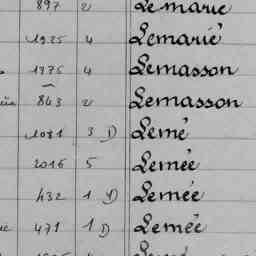 897 2 Lemarie
1935 4 Lemarié
1375 4 Lemasson
843 2 Lemasson
1081 3 D Lemé
2016 5 Lemée
432 1 D Lemée
471 1 D Lemée